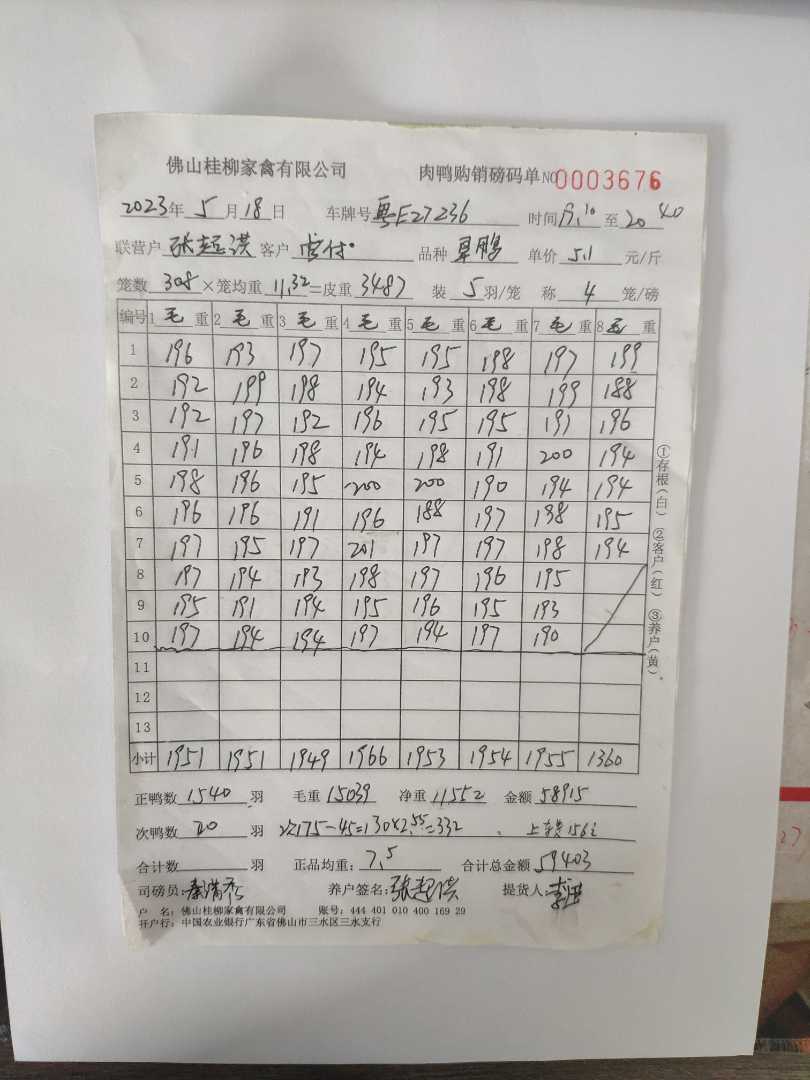 佛山桂柳家禽有限公司 肉鸭购销磅码单 NO 0003676
2023年 5月18日 车牌号 粤E27236 时间 19.10 至 20 40
联营户 张超洪 客户 品种 单价 5.1 元/斤
笼数 308 ×笼均重 11.32 =皮重 3487 装 5 羽/笼 称 4 笼/磅
编号 1 毛 重 2 毛 重 3 毛 重 4 毛 重 5 毛 重 6 毛 重 7 毛 重 8 毛 重
1 196 193 197 195 195 198 197 199
2 192 199 198 194 193 198 199 188
3 192 197 192 196 195 195 191 196
4 191 196 198 194 198 191 200 194
5 198 196 195 200 200 190 194 194
6 196 196 191 196 188 197 198 195
7 197 195 197 201 197 197 198 194
8 197 194 193 198 197 196 195
9 195 191 194 195 196 195 193
10 197 194 194 197 194 197 190
11
12
13
小计 1951 1951 1949 1966 1953 1954 1955 1360
正鸭数 1540 羽 毛重 15039 净重 11552 金额 58915
次鸭数 20 羽 次175-45=130×2.55=332
合计数 羽 正品均重: 7.5 合计总金额 59403
司磅员: 养户签名: 张超洪 提货人:
户 名: 佛山桂柳家禽有限公司 账号: 444 401 010 400 169 29
开户行: 中国农业银行广东省佛山市三水区三水支行
①存根(白) ②客户(红) ③养户(黄)。